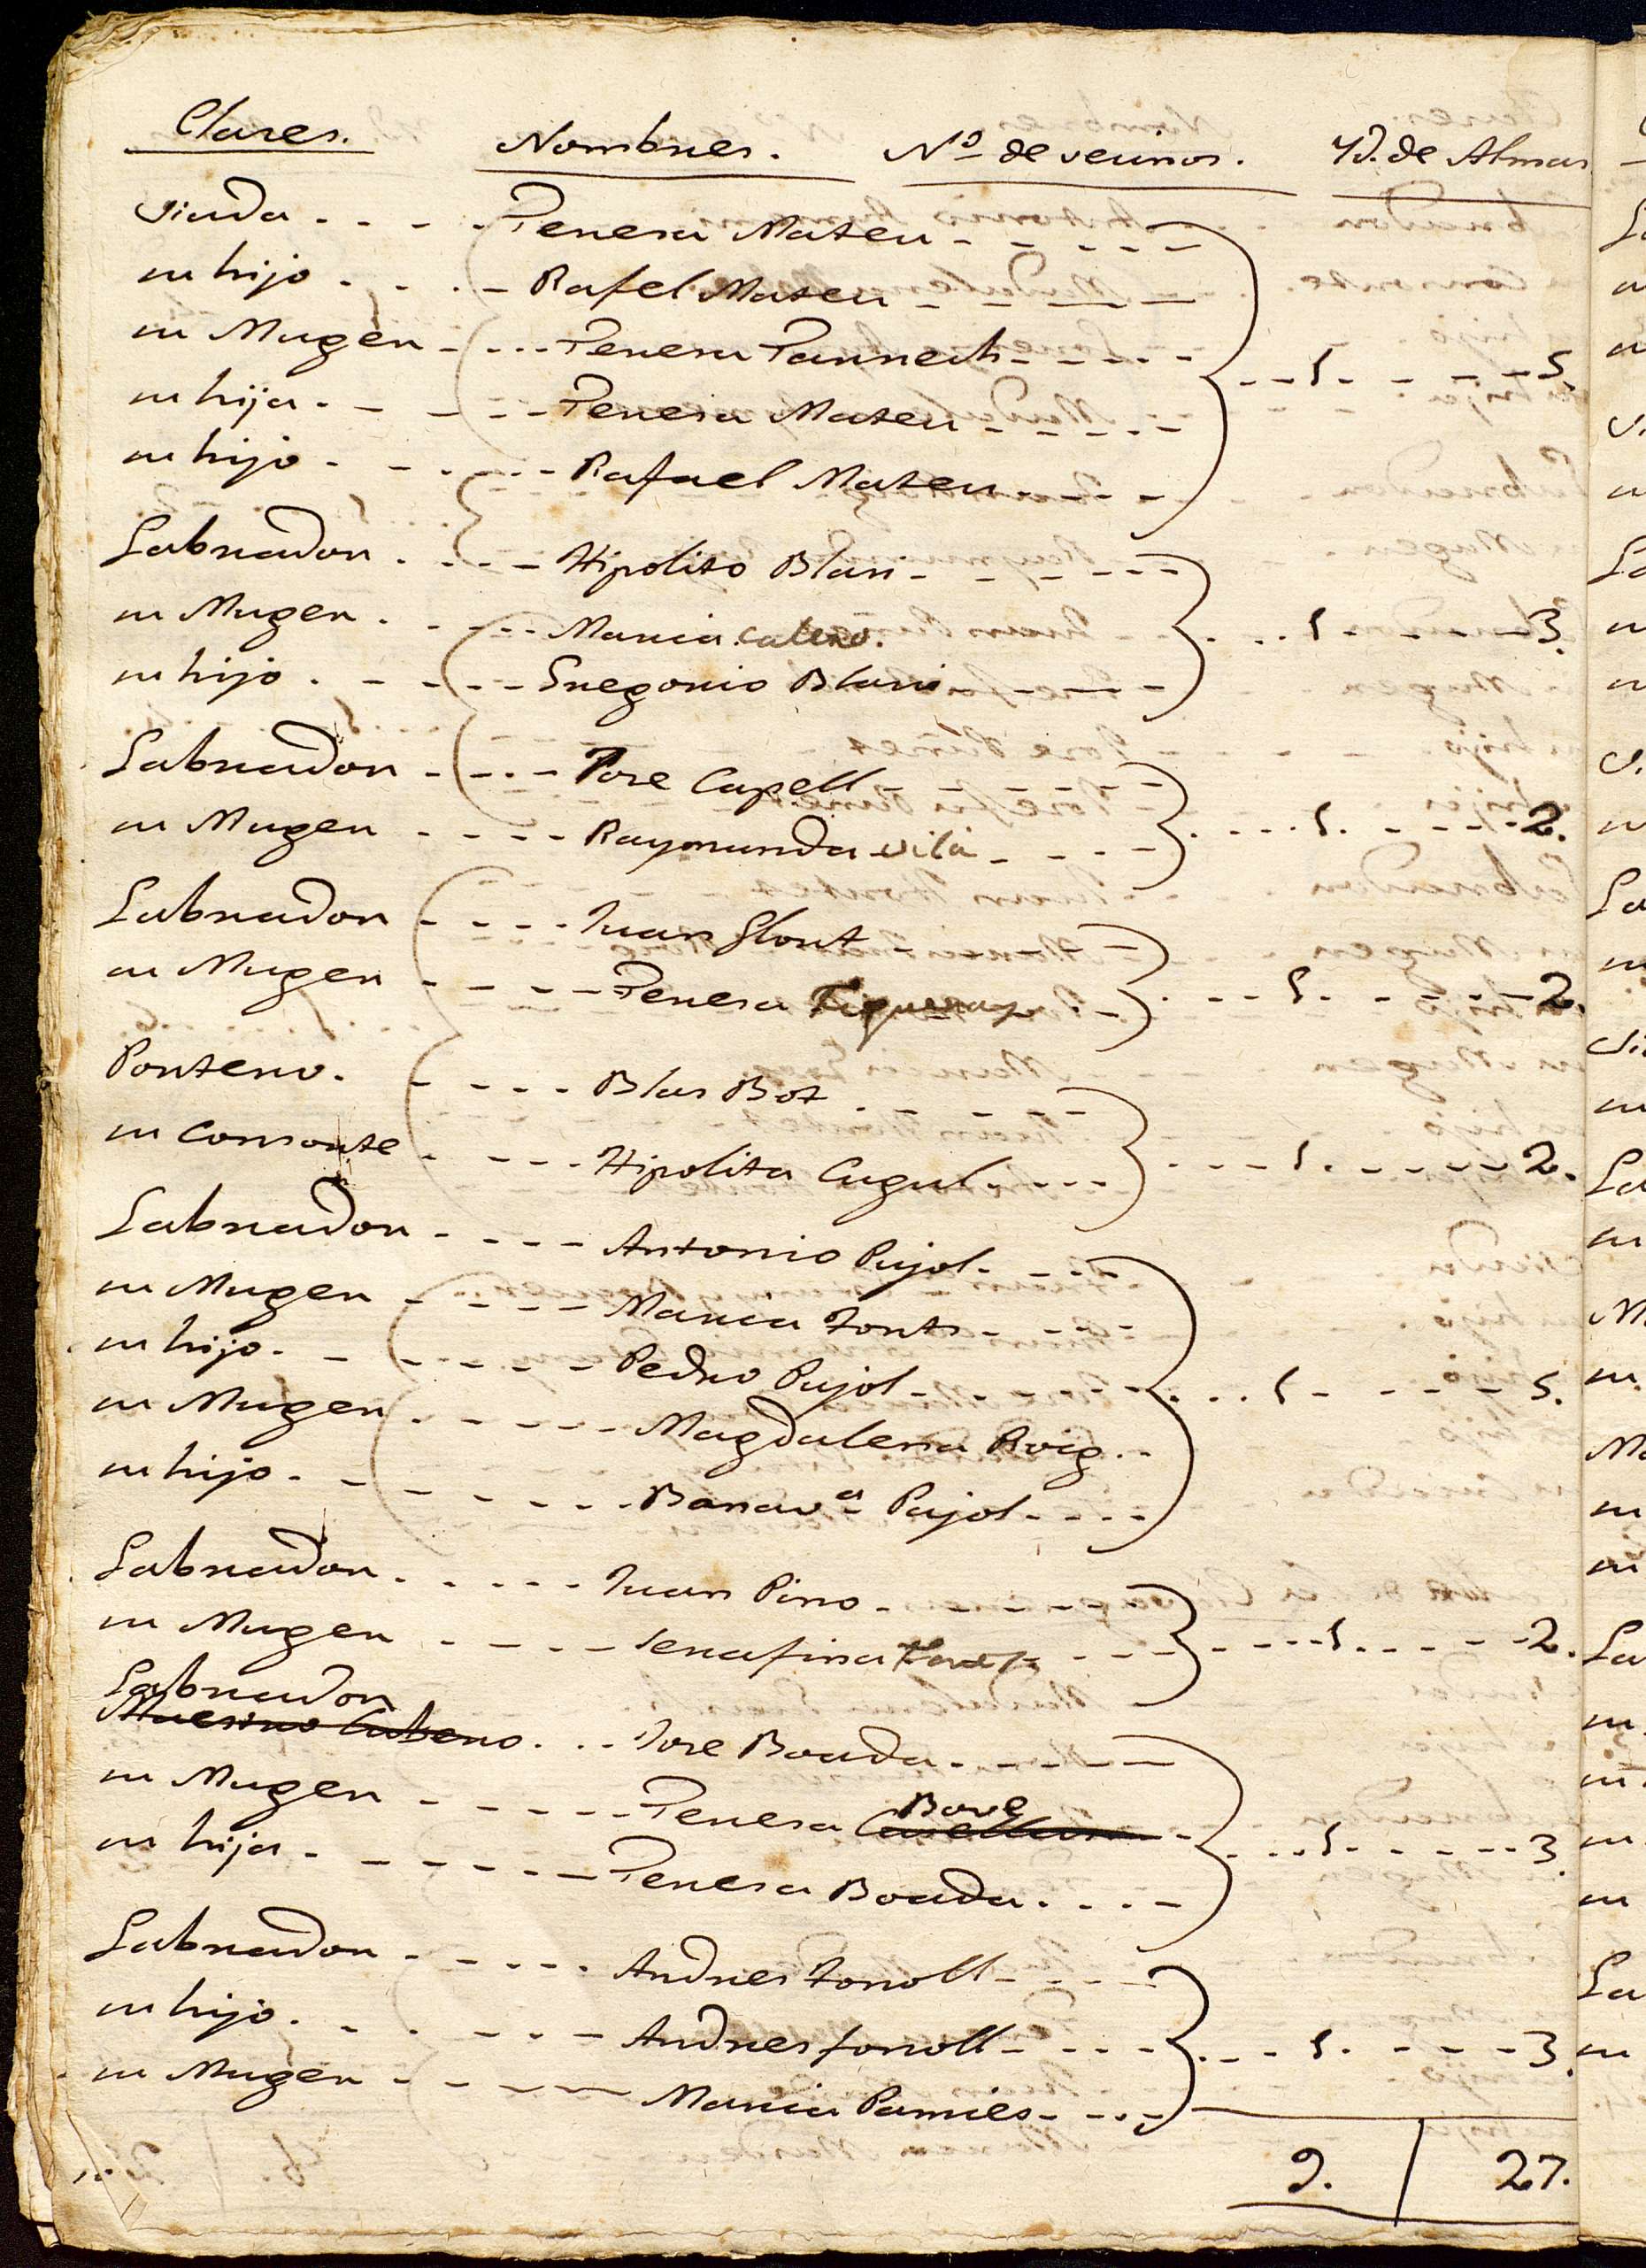 Clases. Nombres. Nº de vecinos. Yd. de Almas
viuda . . . . Teresa Mateu
su hijo . . . . Rafel Mateu
su Muger . . . . Teresa Tarrech . . . 1 . . . 5.
su hija . . . . Teresa Mateu
su hijo . . . . Rafael Mateu
Labrador . . . . Hipolito Blasi
su Muger . . . . Maria calero. . . . 1 . . . 3.
su hijo . . . . Gregorio Blasi
Labrador . . . . Jose Capell
su Muger . . . . Raymunda vila . . . 1 . . . 2.
Labrador . . . . Juan Glort
su Muger . . . . Teresa . . . 1 . . . 2.
Portero. . . . . Blas Bot
su Consorte . . . . Hipolita Cugul . . . 1 . . . 2.
Labrador . . . . Antonio Pujol
su Muger . . . . Maria Fonts
su hijo . . . . Pedro Pujol . . . 1 . . . 5.
su Muger . . . . Magdalena Roig
su hijo . . . . Bonavª Pujol
Labrador . . . . Juan Pino
su Muger . . . . Serafina . . . 1 . . . 2.
Labrador
. . . Jose Boada
Bove
su Muger . . . . Teresa
su hija . . . . Teresa Boada . . . 1 . . . 3.
Labrador . . . . Andres Fonoll
su hijo . . . . Andres fonoll . . . 1 . . . 3.
su Muger . . . . Maria Pamies
9. 27.